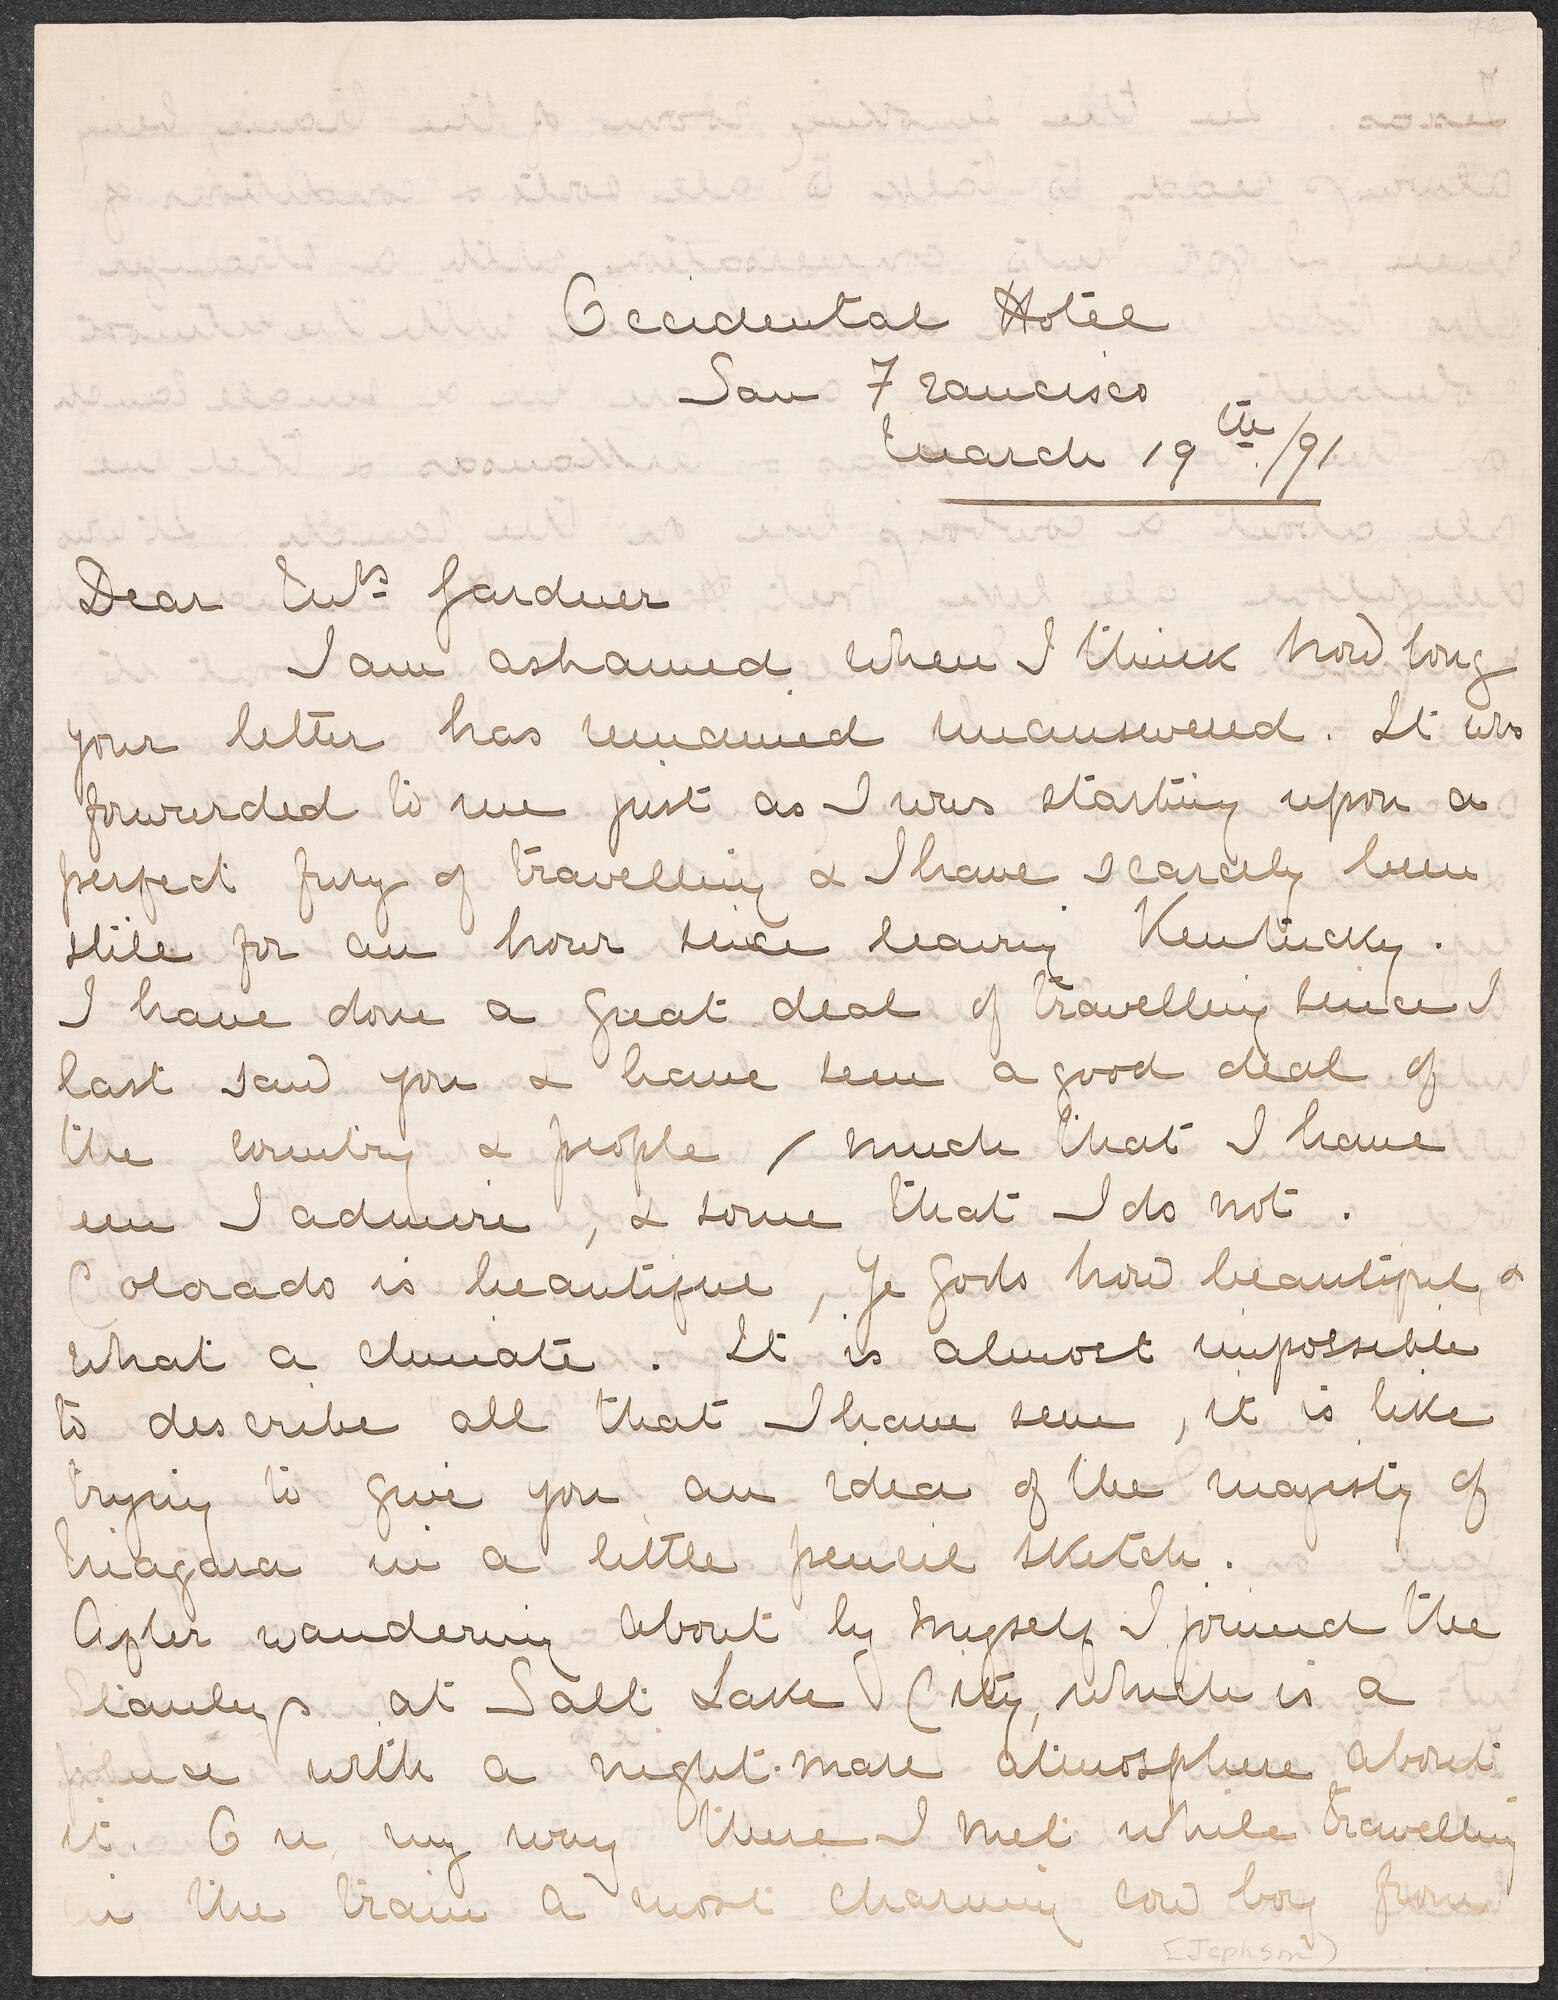 Occidental Hotel
San Francisco
March 19th/91
Dear Mrs Gardner
I am ashamed when I think how long
your letter has remained unanswered. It was
forwarded to me just as I was starting upon a
perfect fury of travelling & I have scarcely been
still for an hour since leaving Kentucky.
I have done a great deal of travelling since I
last saw you & have seen a good deal of
the country & people, much that I have
seen I admire, & some that I do not.
Colorado is beautiful, Ye Gods how beautiful, &
what a climate. It is almost impossible
to describe all that I have seen, it is like
trying to give you an idea of the majesty of
Niagara in a little pencil sketch.
After wandering about by myself I joined the
Stanleys at Salt Lake City, which is a
place with a night-mare atmosphere about
it. On my way there I met while travelling
in the train a most charming cow boy from
[Jephson]